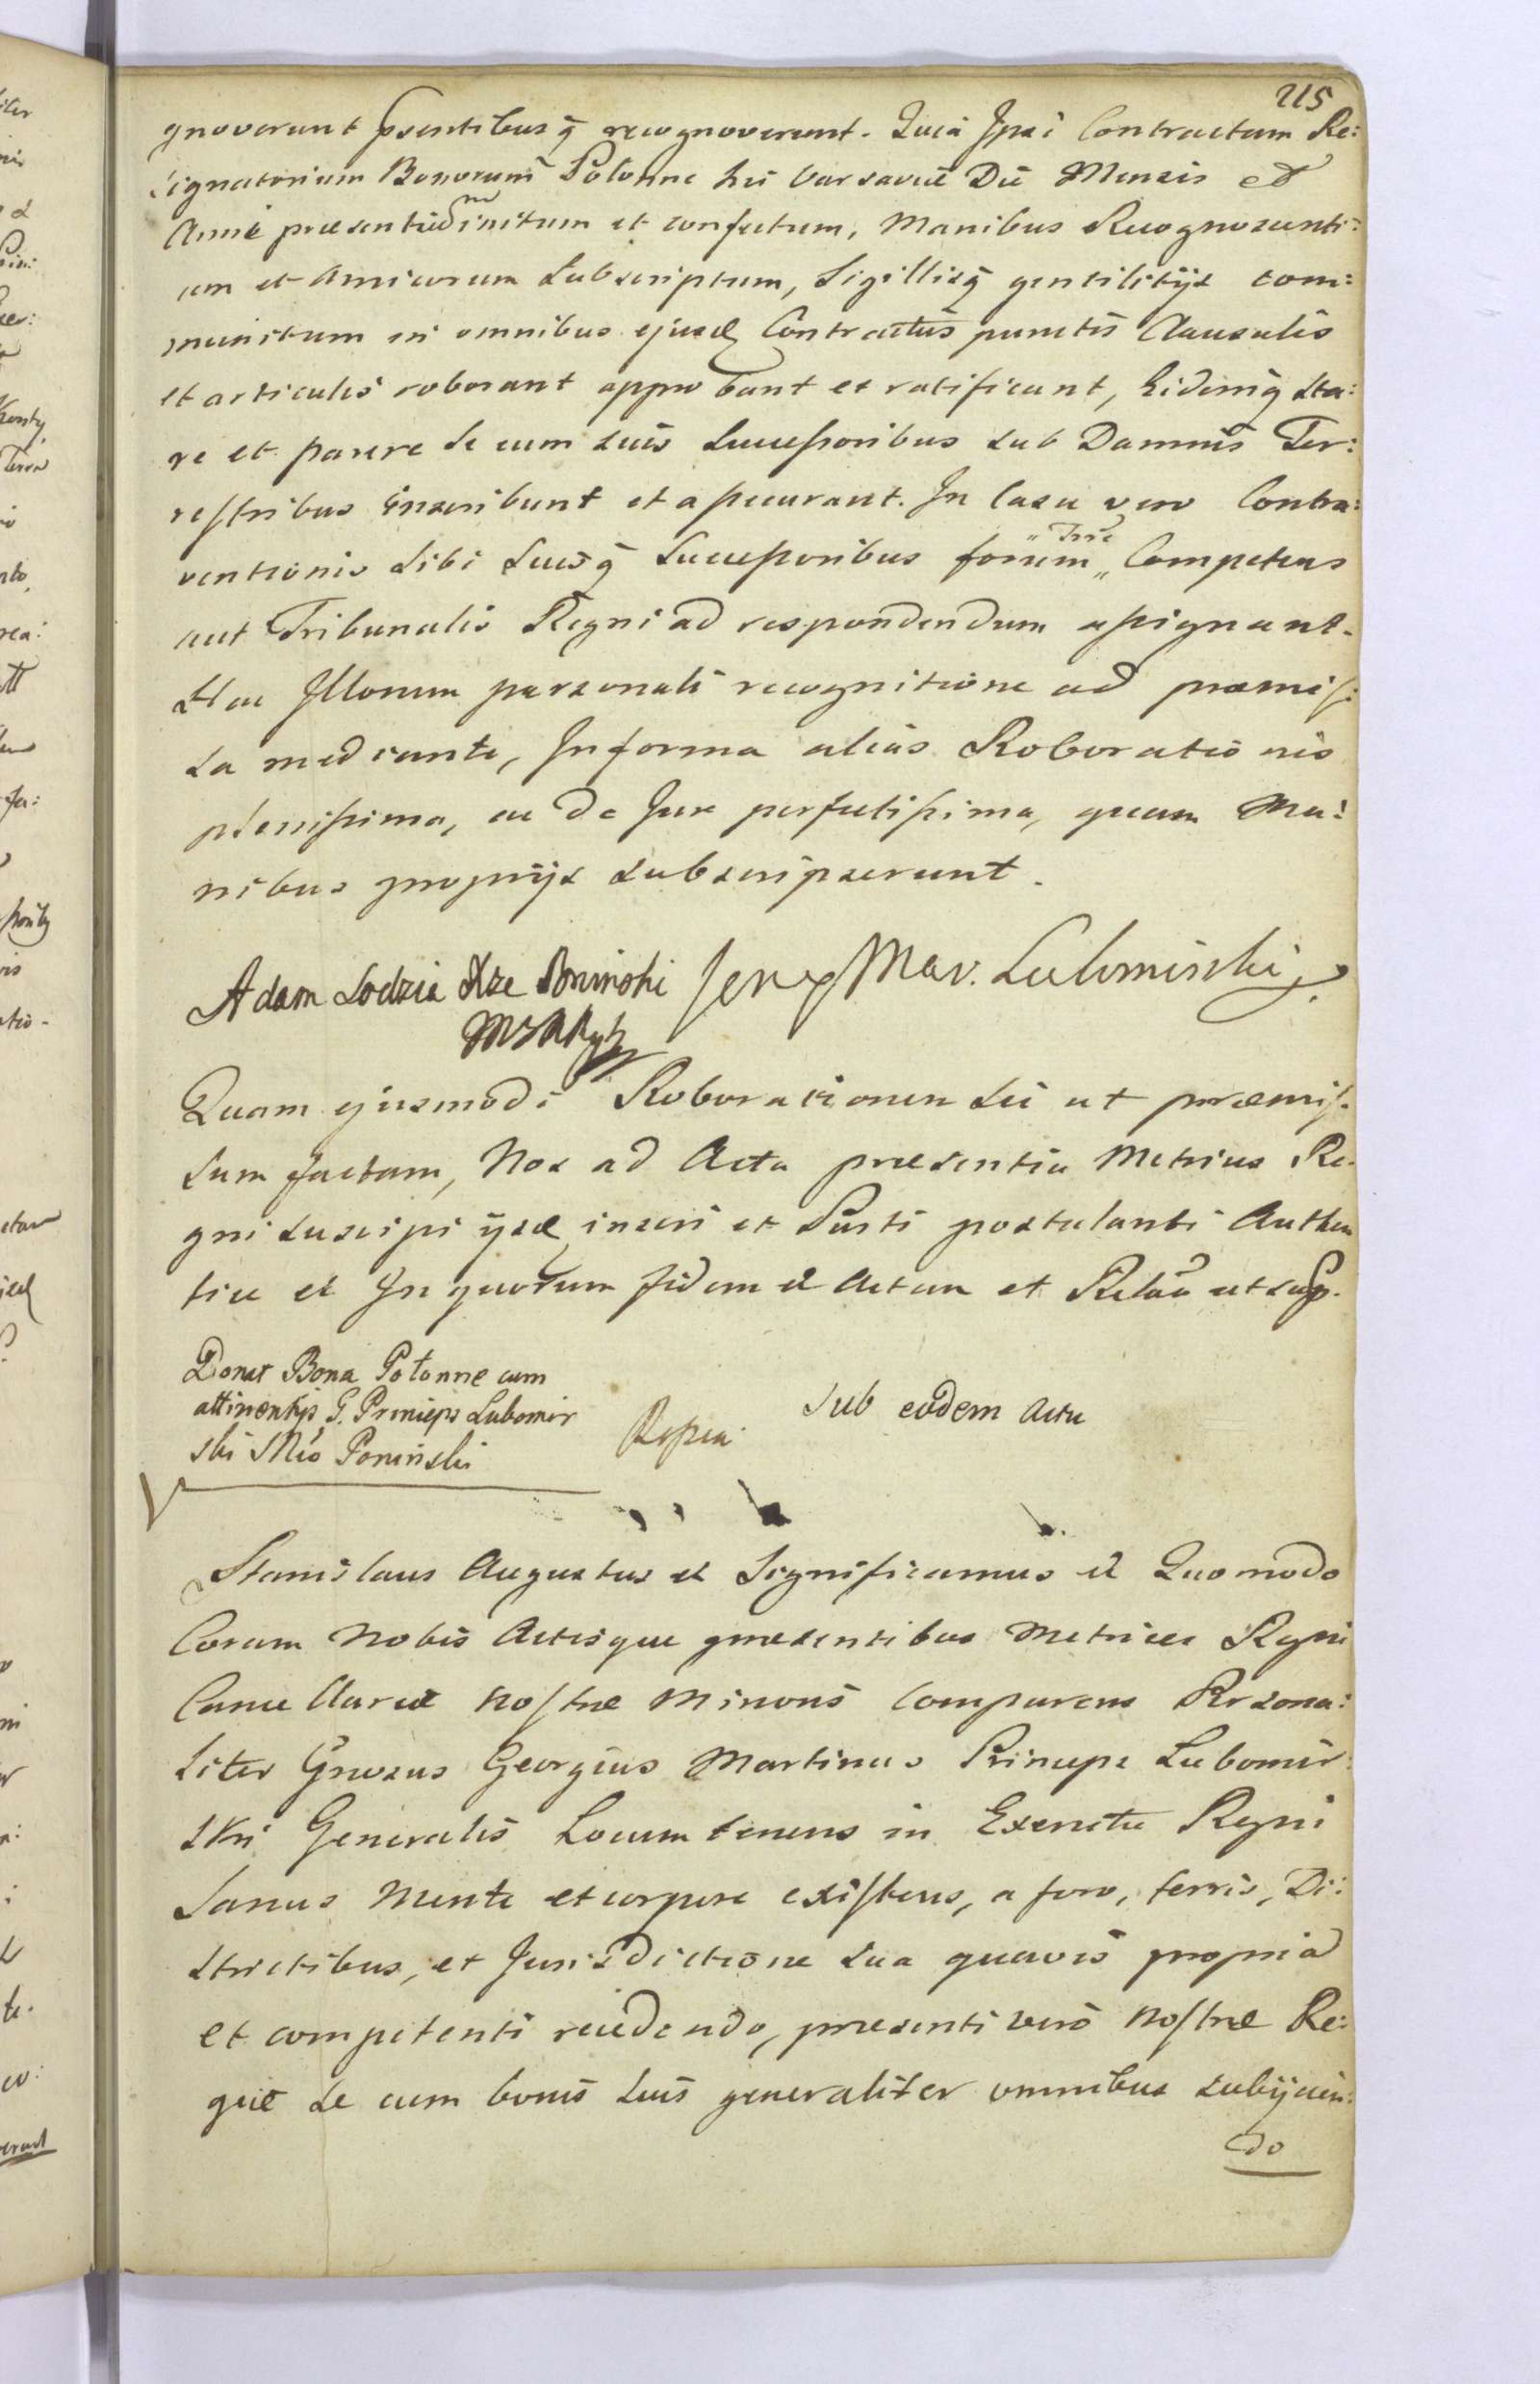 215
gnoverunt psentibusq recognoverunt. Quia Ipsi Contractum Re:
signatorium Bonorum Polonne hic Varsaviæ Die Mensis et
Anni præsentibus initum et confectum, Manibus Recognoscenti:
um et Amicorum Subscriptum, Sigillisq gentilitijs com:
munitum in omnibus ejusd Contractus punctis Clausulis
et articulis roborant approbant et ratificant, Eidemq sta:
re et parere se cum suis Successoribus sub Damnis Ter:
restribus inscribunt et assecurant. In Casu vero Contra:
ventionis sibi suisq Successoribus forum „ Trre „ Competens
aut Tribunalis Regni ad respondendum assignant.
Hac Illorum personali recognitione ad præmis:
sa mediante, In forma alias Roborationis
plenissima, ac de Jure perfectissima, quam Ma:
nibus proprijs subscripserunt.
Adam Lodzia Xże Poninski Jerzy Mar. Lubomirski
Quam ejusmodi Roborationem sic ut præmis:
sum factam, Nos ad Acta præsentia Metrices Re:
gni suscipi ijsd inseri et Parti postulanti Authen
tice et In quorum fidem et Actum et Relao ut sup.
Donat Bona Połonne cum
attinentijs G. Princeps Lubomir
ski Mco Poninski
Sub eodem Actu
Stanislaus Augustus et Significamus et Quomodo
Coram Nobis Actisque præsentibus Metrices Regni
Cancellariæ Nostræ Minoris Comparens Persona:
liter Gnrosus Georgius Martinus Princeps Lubomir:
ski Generalis Locumtenens in Exercitu Regni
Sanus Mente et corpore existens, a foro, terris, Di:
strictibus, et Jurisdictione sua quavis propria
et competenti recedendo, præsenti vero Nostræ Re:
giæ se cum bonis suis generaliter omnibus subijcien:
do